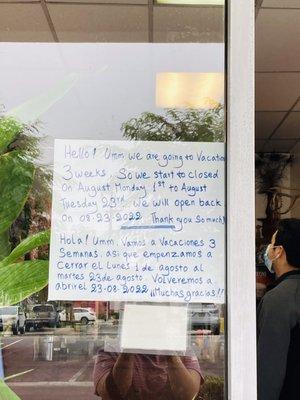 Hello! Umm we are going to Vacation
3 weeks. So we start to closed
On August Monday 1st to August
Tuesday 23rd. We will open back
on 08-23-2022. Thank you so much!
Hola! Umm. Vamos a Vacaciones 3
Semanas. asi que empenzamos a
Cerrar el lunes 1 de agosto al
martes 23 de agosto. Volveremos a
abrirel 23-08-2022 ¡¡Muchas gracias!!